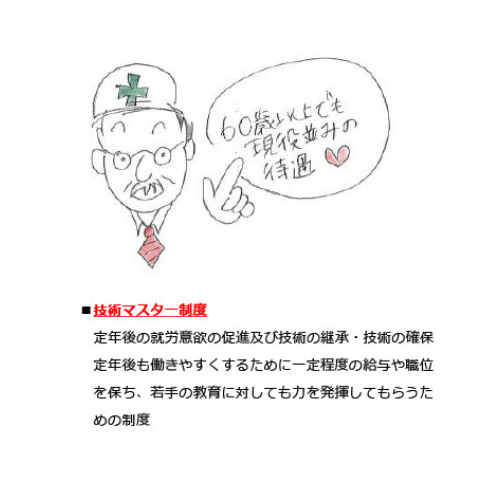 60歳以上でも
現役並みの
待遇
■技術マスター制度
定年後の就労意欲の促進及び技術の継承・技術の確保
定年後も働きやすくするために一定程度の給与や職位
を保ち、若手の教育に対しても力を発揮してもらうた
めの制度